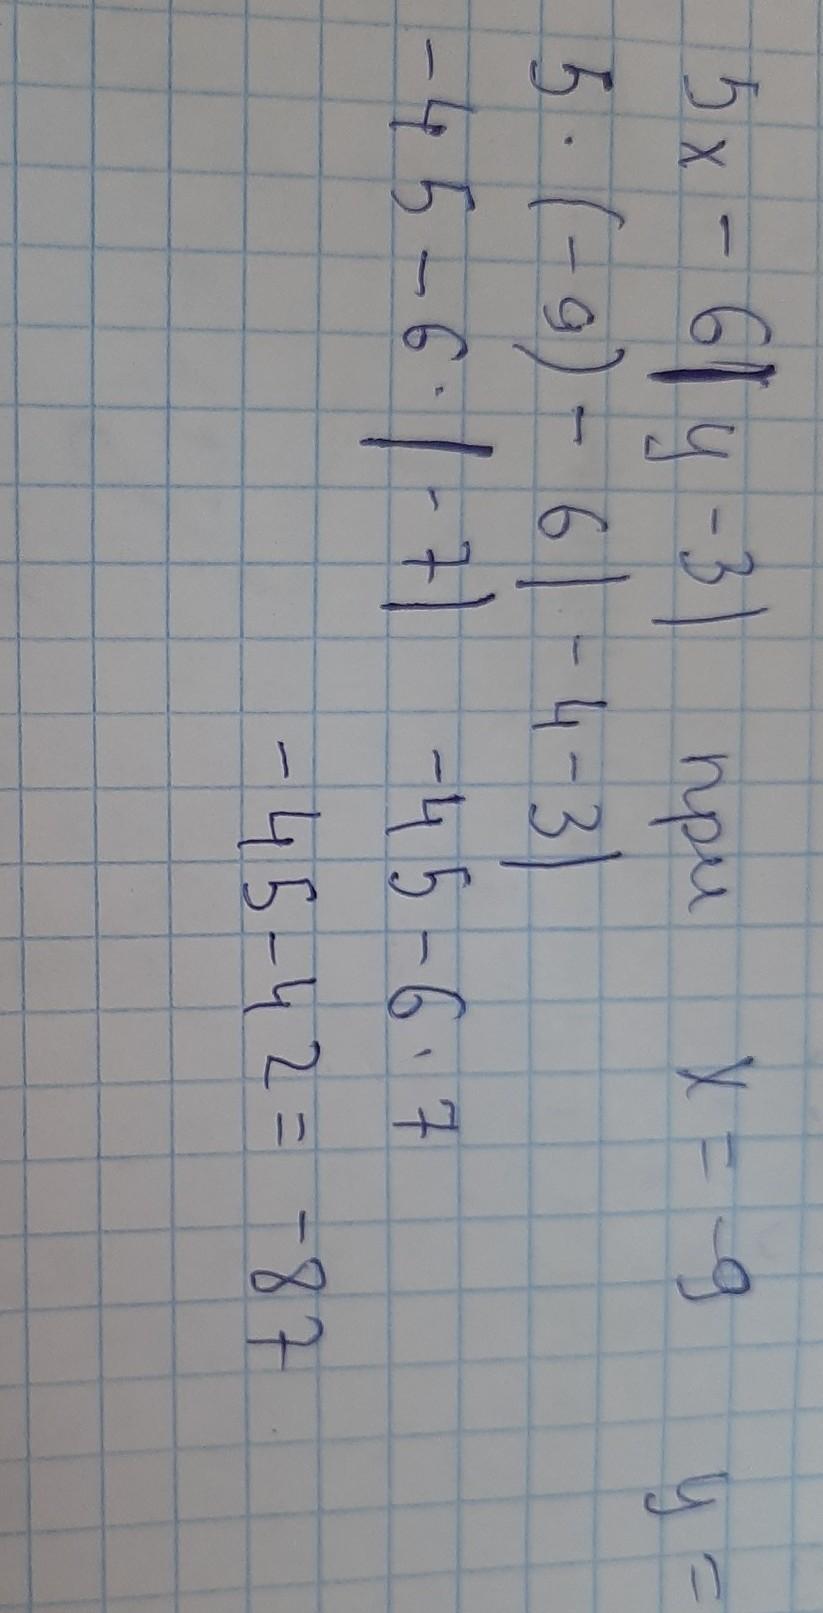 5x - 6|y - 3| при x = -9 y =
5 · (-9) - 6|-4-3|
-45 - 6 · |-7| -45 - 6 · 7
-45 - 42 = -87